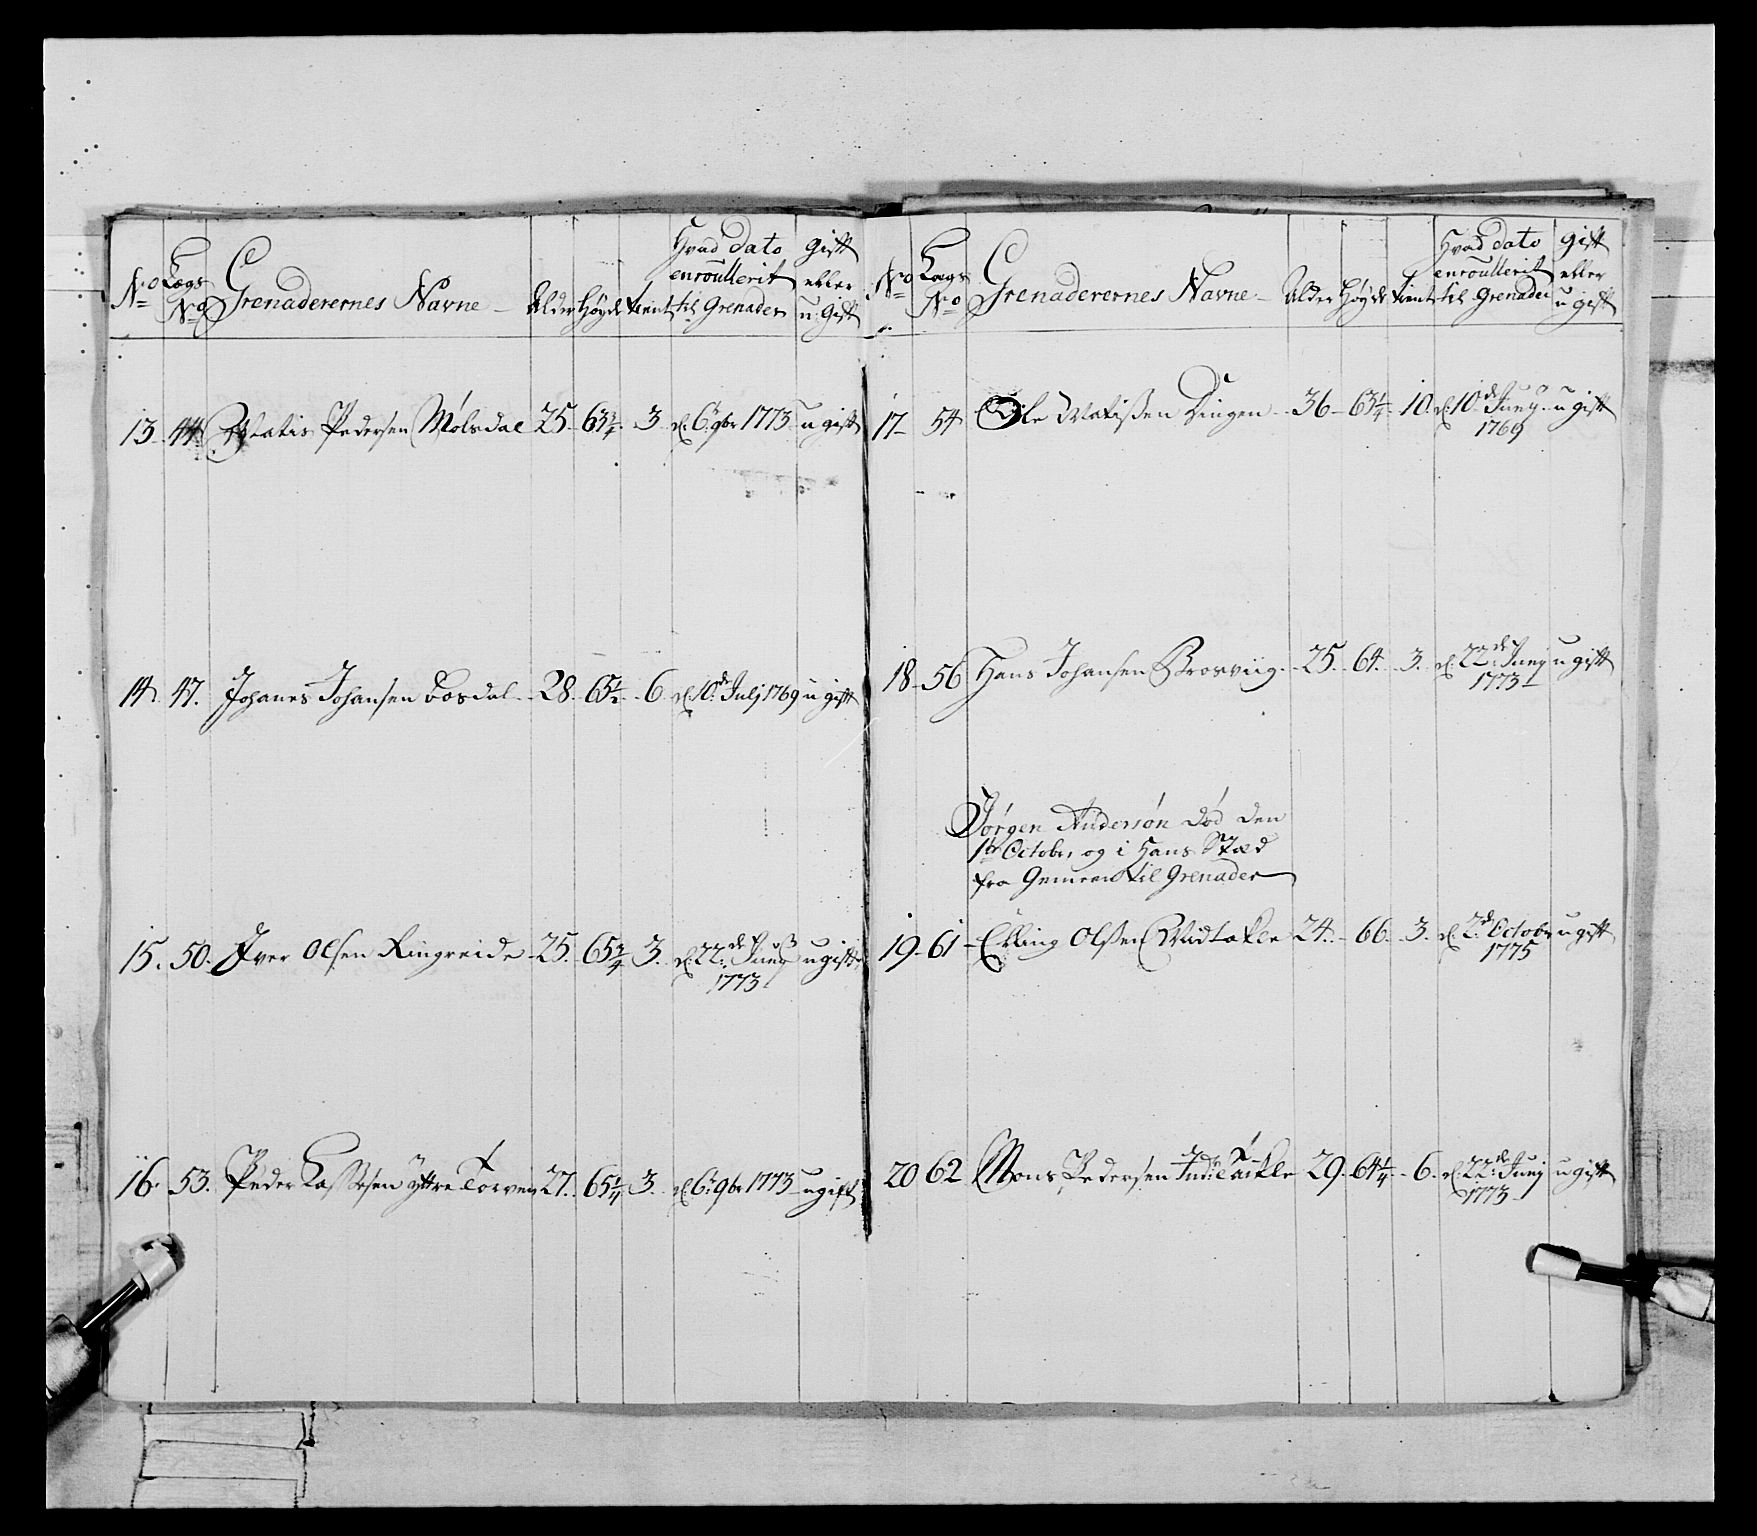 No Lægs No Grenaderernes Navne Alder Høyde tient Hvad dato enroullerit til Grenader gift eller u gift
13. 44 Matis Pedersen Mølsdal 25. 63 3/4. 3. d. 6. 9br 1773 u gift
14. 47. Johanes Johansen Løsdal 28. 65 1/2. 6. d. 10de Julj 1769 u gift
15. 50. Iver Olsen Ringereide 25. 65 3/4 3. d. 22de Junij u gift
1773
16. 53. Peder Lassesen yttre Torven 27. 65 1/4 3. d. 6. 9br 1773 u gift
No Lægs No Grenaderernes Navne Alder Høyde tient Hvad dato enroullerit til Grenader gift eller u gift
17 54 Ole Matissen Dingen 36 63 1/4 10. d. 10de Junij u gift
1769
18 56 Hans Johansen Brosviig 25. 64. 3. d. 22de Junij u gift
1773
Jørgen Andersøn død den
1te Octobr, og i Hans Stæd
fra Gemeen til Grenader
19 61 Elling Olssen Midtakle 24. 66. 3. d. 2de Octobr u gift
1775
20 62 Mons Pedersen Ind: Takle 29. 64 1/4 6. d. 22de Junij u gift
1773